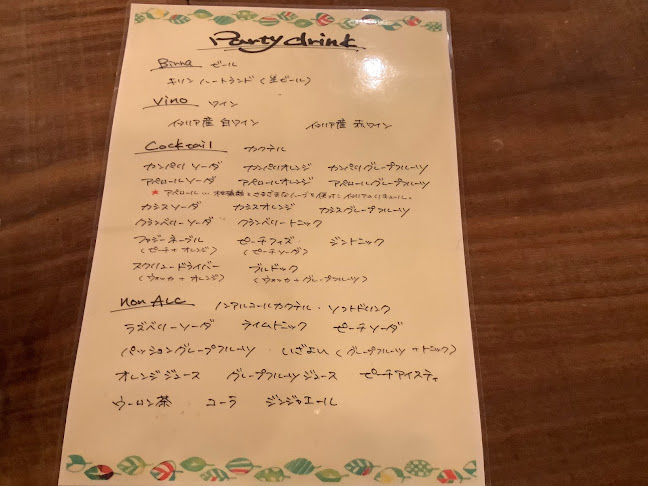 Party drink
Birra ビール
キリン ハートランド (生ビール)
Vino ワイン
イタリア産 白ワイン イタリア産 赤ワイン
Cocktail カクテル
カンパリソーダ カンパリオレンジ カンパリグレープフルーツ
アペロールソーダ アペロールオレンジ アペロールグレープフルーツ
* アペロール… とさまざまなハーブを使った イタリアのリキュール。
カシスソーダ カシスオレンジ カシスグレープフルーツ
クランベリーソーダ クランベリートニック
ファジーネーブル ピーチフィズ ジントニック
(ピーチ+オレンジ) (ピーチソーダ)
スクリュードライバー ブルドック
(ウォッカ+オレンジ) (ウォッカ+グレープフルーツ)
non ALC ノンアルコールカクテル・ソフトドリンク
ラズベリーソーダ ライムトニック ピーチソーダ
パッショングレープフルーツ いざよい (グレープフルーツ+トニック)
オレンジジュース グレープフルーツジュース ピーチアイスティ
ウーロン茶 コーラ ジンジャエール